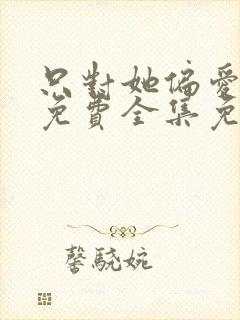 只對她偏愛
免費全集免
馨驍婉